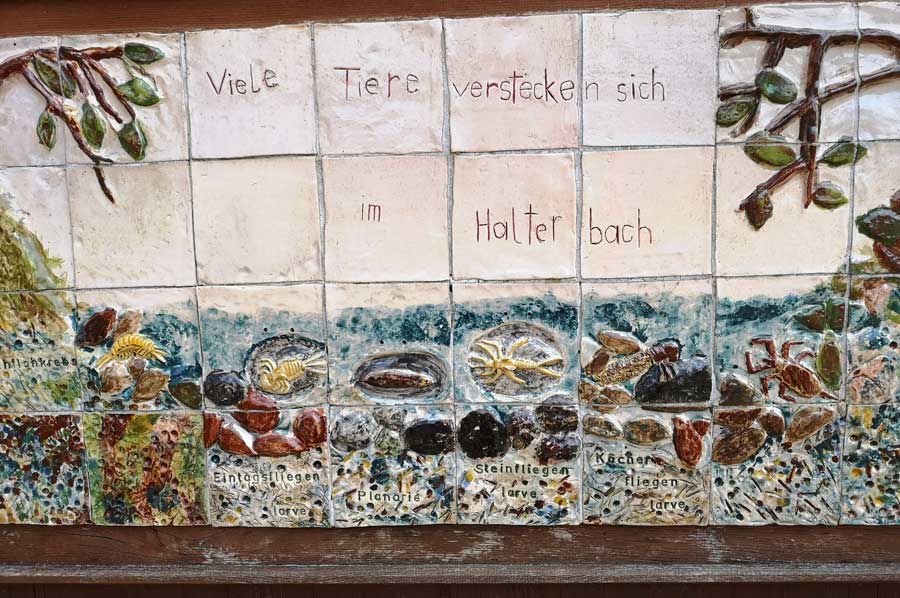 Viele Tiere verstecken sich
im Halter bach
hflohkrebs
Eintagsfliegen
larve
Planarie
Steinfliegen
larve
Köcher
fliegen
larve